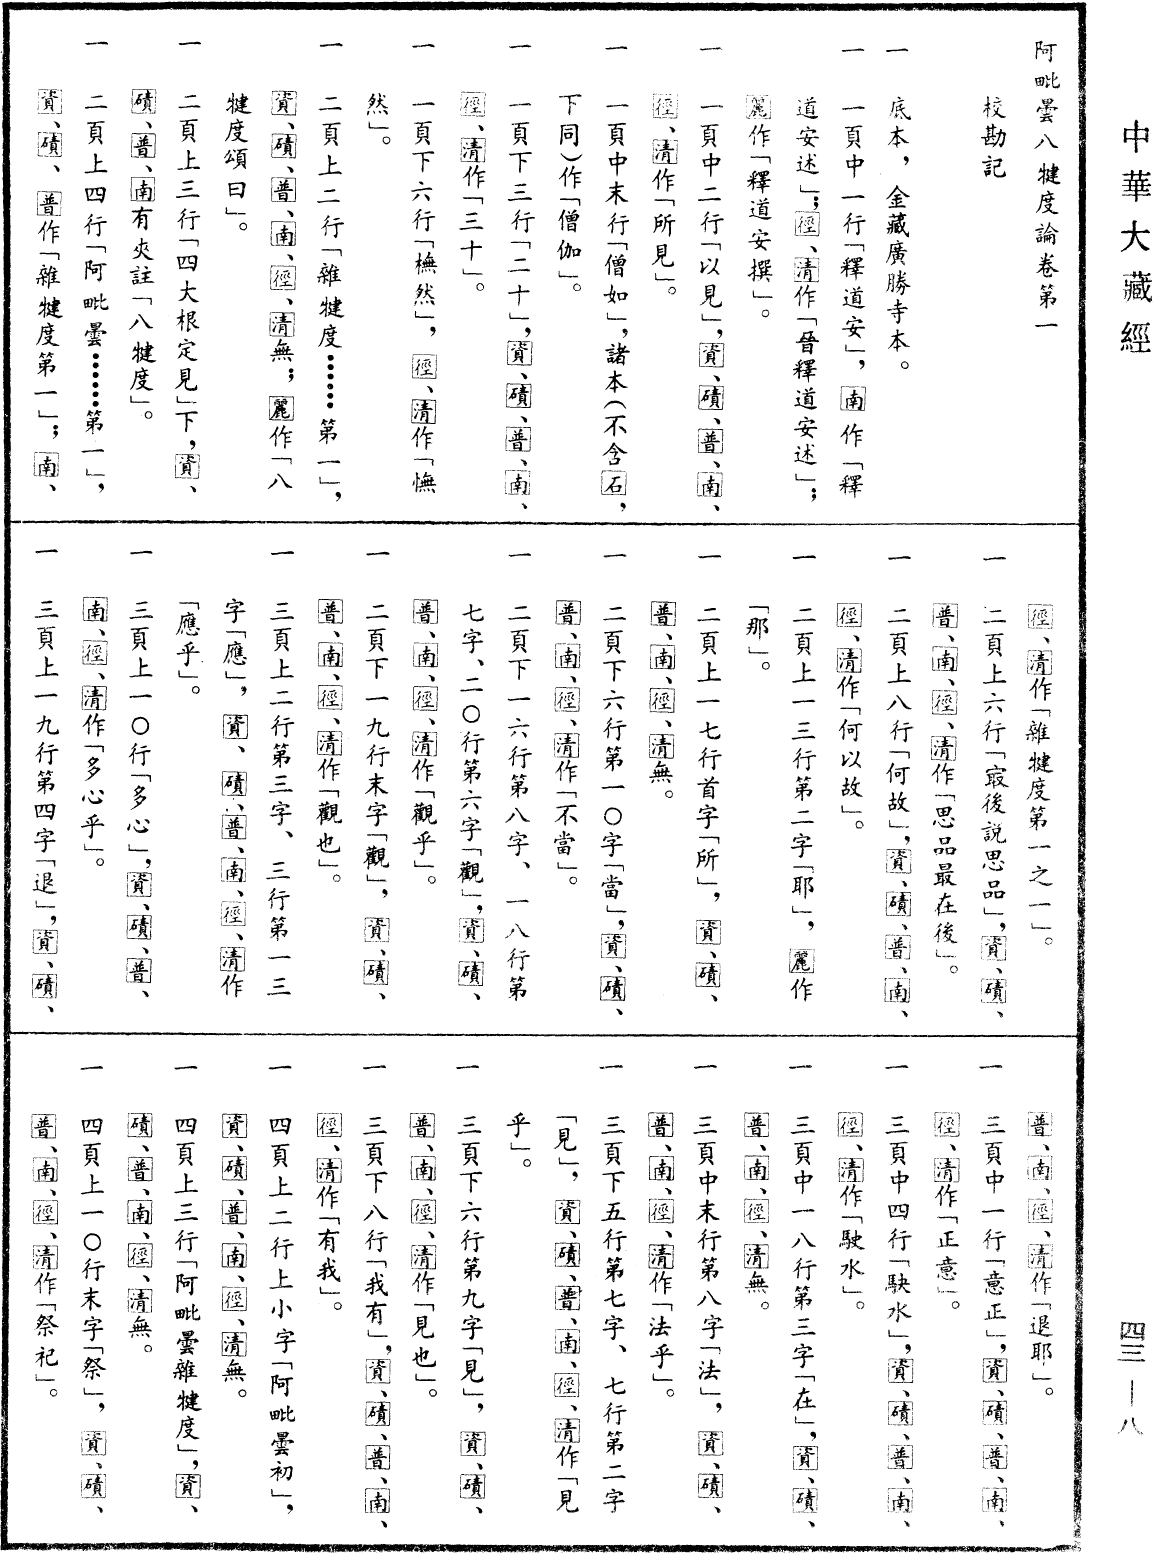 中華大藏經
阿毗曇八犍度論卷第一
校勘記
一　底本，金藏廣勝寺本。
一　一頁中一行「釋道安」，南作「釋
道安述」；徑、清作「晉釋道安述」；
麗作「釋道安撰」。
一　一頁中二行「以見」，資、磧、普、南、
徑、清作「所見」。
一　一頁中末行「僧如」，諸本（不含石，
下同）作「僧伽」。
一　一頁下三行「二十」，資、磧、普、南、
徑、清作「三十」。
一　一頁下六行「橅然」，徑、清作「憮
然」。
一　二頁上二行「雜犍度……第一」，
資、磧、普、南、徑、清無；麗作「八
犍度頌曰」。
一　二頁上三行「四大根定見」下，資、
磧、普、南有夾註「八犍度」。
一　二頁上四行「阿毗曇……第一」，
資、磧、普作「雜犍度第一」；南、
徑、清作「雜犍度第一之一」。
一　二頁上六行「㝡後説思品」，資、磧、
普、南、徑、清作「思品最在後」。
一　二頁上八行「何故」，資、磧、普、南、
徑、清作「何以故」。
一　二頁上一三行第二字「耶」，麗作
「那」。
一　二頁上一七行首字「所」，資、磧、
普、南、徑、清無。
一　二頁下六行第一〇字「當」，資、磧、
普、南、徑、清作「不當」。
一　二頁下一六行第八字、一八行第
七字、二〇行第六字「觀」，資、磧、
普、南、徑、清作「觀乎」。
一　二頁下一九行末字「觀」，資、磧、
普、南、徑、清作「觀也」。
一　三頁上二行第三字、三行第一三
字「應」，資、磧、普、南、徑、清作
「應乎」。
一　三頁上一〇行「多心」，資、磧、普、
南、徑、清作「多心乎」。
一　三頁上一九行第四字「退」，資、磧、
普、南、徑、清作「退耶」。
一　三頁中一行「意正」，資、磧、普、南、
徑、清作「正意」。
一　三頁中四行「駃水」，資、磧、普、南、
徑、清作「駛水」。
一　三頁中一八行第三字「在」，資、磧、
普、南、徑、清無。
一　三頁中末行第八字「法」，資、磧、
普、南、徑、清作「法乎」。
一　三頁下五行第七字、七行第二字
「見」，資、磧、普、南、徑、清作「見
乎」。
一　三頁下六行第九字「見」，資、磧、
普、南、徑、清作「見也」。
一　三頁下八行「我有」，資、磧、普、南、
徑、清作「有我」。
一　四頁上二行上小字「阿毗曇初」，
資、磧、普、南、徑、清無。
一　四頁上三行「阿毗曇雜犍度」，資、
磧、普、南、徑、清無。
一　四頁上一〇行末字「祭」，資、磧、
普、南、徑、清作「祭祀」。
四三—八